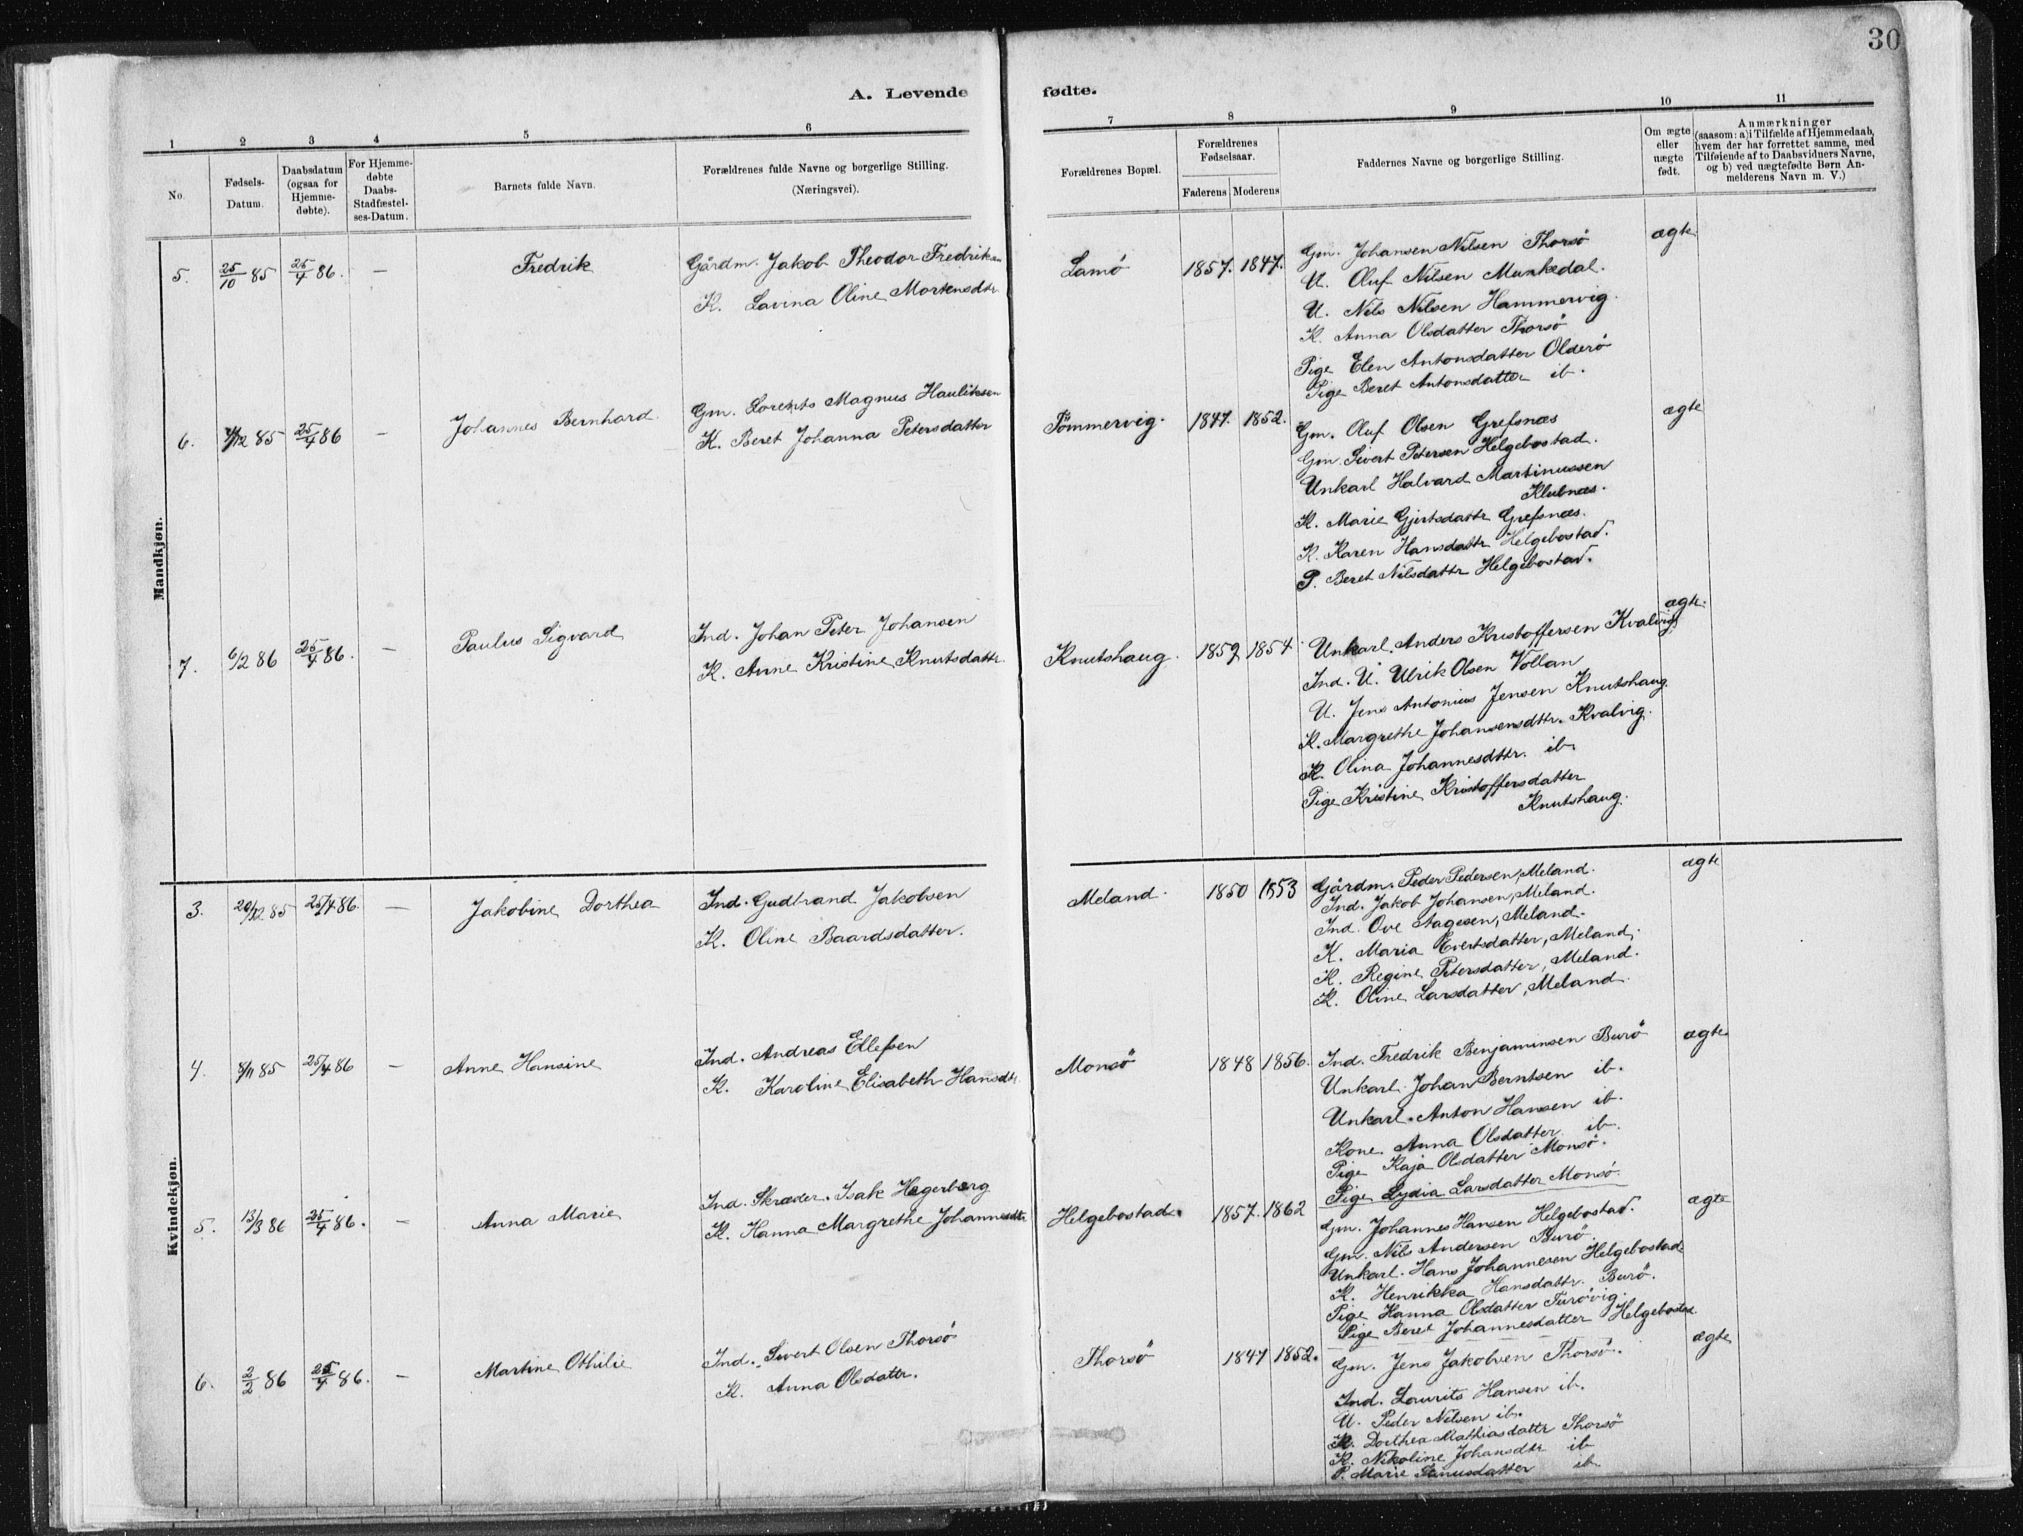 30
A. Levende fødte.
1 2 3 4 5 6 7 8 9 10 11
No.
Fødsels-Datum.
Daabsdatum (ogsaa for Hjemme-døbte).
For Hjemme-døbte Daabs-Stadfæstel-ses-Datum.
Barnets fulde Navn.
Forældrenes fulde Navne og borgerlige Stilling.
(Næringsvei).
Forældrenes Bopæl.
Forældrenes Fødselsaar.
Faderens Moderens
Faddernes Navne og borgerlige Stilling.
Om ægte eller uægte født.
Anmærkninger
(saasom: a) i Tilfælde af Hjemmedaab,
hvem der har forrettet samme, med
Tilføiende af to Daabsvidners Navne,
og b) ved uægtefødte Børn An-
melderens Navn m. V.)
Mandkjøn.
5. 25/10 85 25/4 86. — Fredrik
Gårdm. Jakob Theodor Fredriksen
K. Lavina Oline Mortensdtr
Lamö 1857. 1847.
Gm. Johansen Nilsen Thorsö
U. Oluf Nilsen Munkedal.
U. Nils Nilsen Hammervig.
K. Anna Olsdatter Thorsö
Pige Elen Antonsdatter Olderö
Pige Beret Antonsdatter ib.
ægte
6. /12 85 25/4 86 — Johannes Bernhard
Gm. Lorents Magnus Hauliksen
K. Beret Johanna Petersdatter
Tömmervig. 1847. 1852.
Gm. Oluf Olsen Grefsnæs
Gm. Sivert Petersen Helgebostad.
Unkarl Halvard Martinussen
Klubnæs.
K. Marie Gjertsdattr Grefsnæs.
K. Karen Hansdattr Helgebostad.
P. Beret Nilsdattr Helgebostad.
ægte
7. 6/2 86 25/4 86. — Paulus Sigvard
Ind. Johan Peter Johansen
K. Anne Kristine Knutsdattr
Knutshaug. 1859 1854
Unkarl Anders Kristoffersen Kvalvig
Ind. U. Ulrik Olsen Vollan
U. Jens Antonius Jensen Knutshaug
K. Margrethe Johansensdttr. Kvalvig.
K. Olina Johannesdttr. ib.
Pige Kristine Kristoffersdatter
Knutshaug.
ægte.
Kvindekjøn.
3. 20/12 85 25/4 86. — Jakobine Dorthea
Ind. Gudtrand Jakobsen
K. Oline Baardsdatter.
Meland. 1850 1853
Gårdm. Peder Pedersen, Meland.
Ind. Jakob Johansen, Meland.
Ind. Ove Aagesen, Meland.
K. Maria Evertsdatter, Meland.
K. Regine Petersdatter, Meland.
K. Oline Larsdatter, Meland.
ægte
4. 8/11 85 25/4 86 — Anne Hansine
Ind. Andreas Ellefsen
K. Karoline Elisabeth Hansdtr.
Monsö 1848 1856.
Ind. Fredrik Benjaminsen Burö
Unkarl. Johan Berntsen ib.
Unkarl. Anton Hansen ib.
Kone. Anna Olsdatter. ib.
Pige Kaja Olsdatter Monsö.
Pige Lydia Larsdatter Monsö.
ægte
5. 13/3 86 25/4 86. — Anna Marie
Ind. Skræder. Isak Hegerberg
K. Hanna Margrethe Johannesdtr
Helgebostad. 1857. 1862
Gm. Johannes Hansen Helgebostad.
Gm. Nils Andersen Burö.
Unkarl. Hans Johannesen Helgebostad.
K. Henrikka Hansdattr. Burö.
Pige Hanna Olsdatter Turövig.
Pige Beret Johannesdatter Helgebostad
ægte
6. 2/2 86 25/4 86. — Martine Othilie
Ind. Sivert Olsen Thorsö
K. Anna Olsdattr.
Thorsö 1847 1852.
Gm. Jens Jakobsen Thorsö.
Ind. Laurits Hansen ib.
U. Peder Nilsen ib.
K. Dorthea Mathiasdattr Thorsö
K. Nikoline Johansdtr ib
P. Marie datter ib
ægte